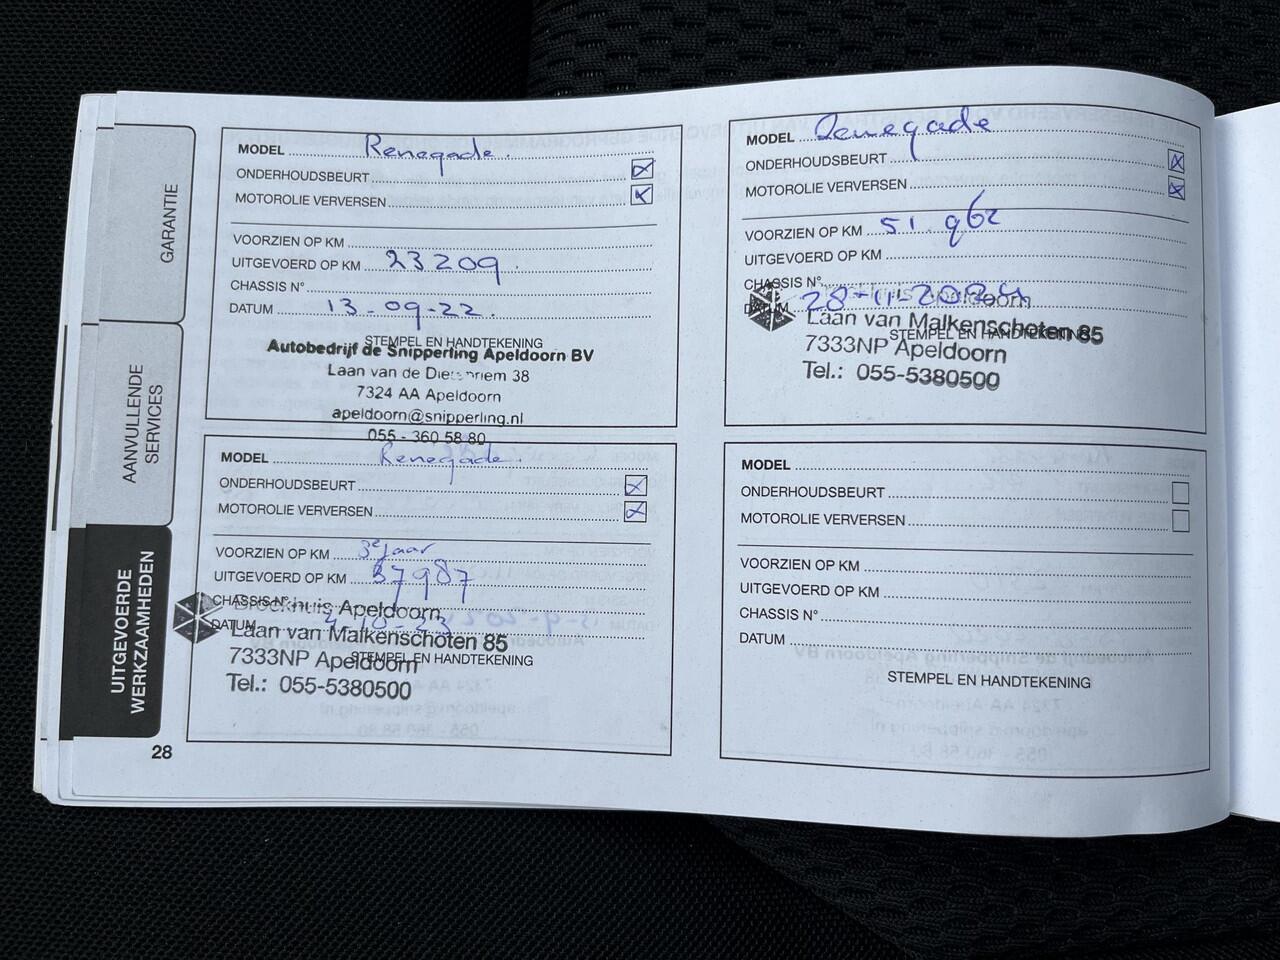 GARANTIE
AANVULLENDE
SERVICES
UITGEVOERDE
WERKZAAMHEDEN
28
MODEL Renegade.
ONDERHOUDSBEURT
MOTOROLIE VERVERSEN
VOORZIEN OP KM
UITGEVOERD OP KM 23209.
CHASSIS N°
DATUM 13-09-22.
STEMPEL EN HANDTEKENING
Autobedrijf de Snipperling Apeldoorn BV
Laan van de Dierenriem 38
7324 AA Apeldoorn
apeldoorn@snipperling.nl
055 - 360 58 80
MODEL Renegade.
ONDERHOUDSBEURT
MOTOROLIE VERVERSEN
VOORZIEN OP KM 3e jaar
UITGEVOERD OP KM 37987
CHASSIS N°
Brockhuis Apeldoorn
DATUM 4-10-23
Laan van Malkenschoten 85
7333NP Apeldoorn
STEMPEL EN HANDTEKENING
Tel.: 055-5380500
MODEL Renegade
ONDERHOUDSBEURT
MOTOROLIE VERVERSEN
VOORZIEN OP KM 51.962
UITGEVOERD OP KM
CHASSIS N°
Apeldoorn
DATUM 28-11-2024
Laan van Malkenschoten 85
STEMPEL EN HANDTEKENING
7333NP Apeldoorn
Tel.: 055-5380500
MODEL
ONDERHOUDSBEURT
MOTOROLIE VERVERSEN
VOORZIEN OP KM
UITGEVOERD OP KM
CHASSIS N°
DATUM
STEMPEL EN HANDTEKENING